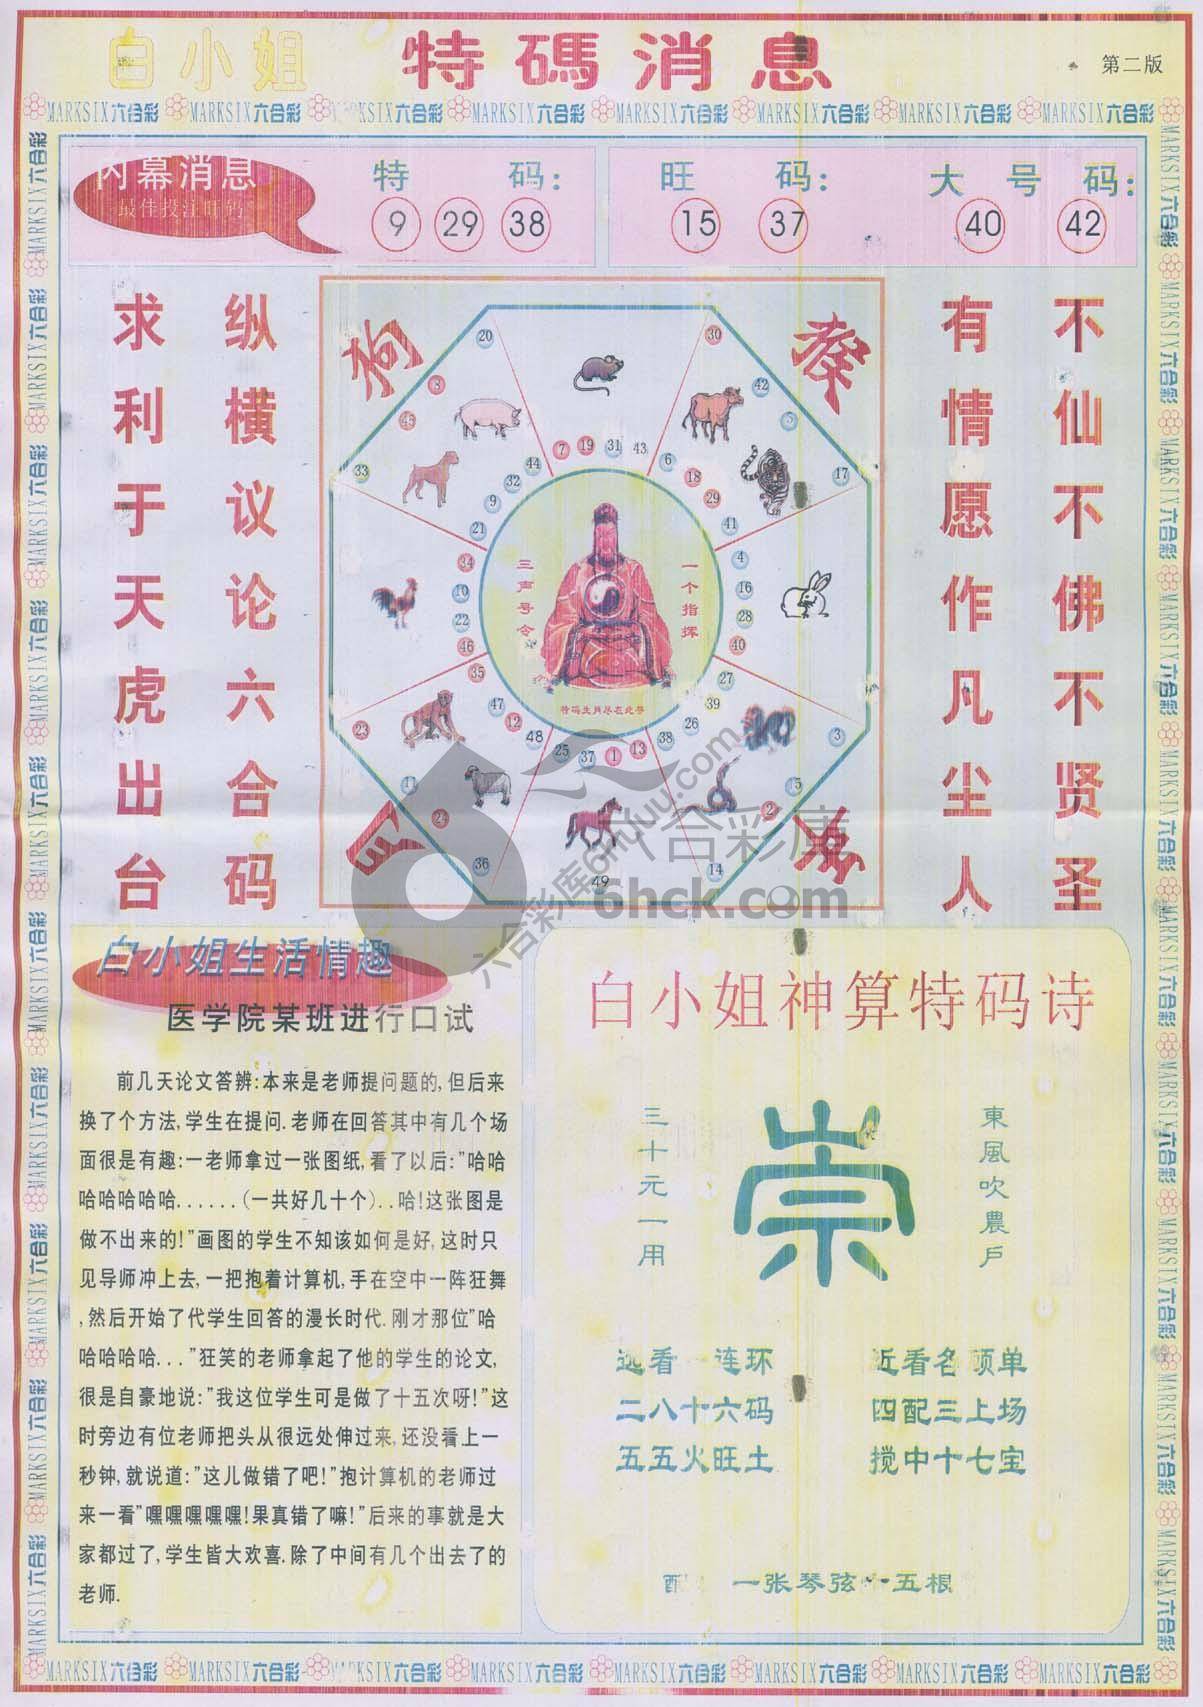 白小姐 特碼消息 第二版
MARKSIX六合彩 MARKSIX六合彩 MARKSIX六合彩 MARKSIX六合彩 MARKSIX六合彩 MARKSIX六合彩 MARKSIX六合彩 MARKSIX六合彩
内幕消息
最佳投注旺码
特 码:
9 29 38
旺 码:
15 37
大 号 码:
40 42
求利于天虎出台
纵横议论六合码
有情愿作凡尘人
不仙不佛不贤圣
狗
猴
20
30
8
42
5
45
33
17
7 19 31 43
44
32
9
21
6
18
29
41
34
10
22
46
4
16
28
40
35
47
12
48
27
39
26
38
25 37 1 13
23
11
24
36
3
15
2
14
49
三声号令
一个指挥
特码生肖尽在此寻
六合彩库
6hck.com
白小姐生活情趣
医学院某班进行口试
前几天论文答辨:本来是老师提问题的,但后来
换了个方法,学生在提问.老师在回答其中有几个场
面很是有趣:一老师拿过一张图纸,看了以后:"哈哈
哈哈哈哈哈......(一共好几十个)..哈!这张图是
做不出来的!"画图的学生不知该如何是好,这时只
见导师冲上去,一把抱着计算机,手在空中一阵狂舞
,然后开始了代学生回答的漫长时代.刚才那位"哈
哈哈哈哈..."狂笑的老师拿起了他的学生的论文,
很是自豪地说:"我这位学生可是做了十五次呀!"这
时旁边有位老师把头从很远处伸过来,还没看上一
秒钟,就说道:"这儿做错了吧!"抱计算机的老师过
来一看"嘿嘿嘿嘿嘿!果真错了嘛!"后来的事就是大
家都过了,学生皆大欢喜.除了中间有几个出去了的
老师.
白小姐神算特码诗
三十元一用
崇
東風吹農戶
远看一连环 近看名顶单
二八十六码 四配三上场
五五火旺土 搅中十七宝
配 一张琴弦一五根
MARKSIX六合彩 MARKSIX六合彩 MARKSIX六合彩 MARKSIX六合彩 MARKSIX六合彩 MARKSIX六合彩 MARKSIX六合彩 MARKSIX六合彩